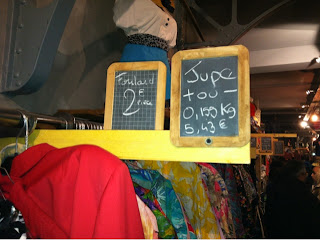 Foulard
2€
pièce
Jupe
+ ou -
0,159 Kg
5,43 €